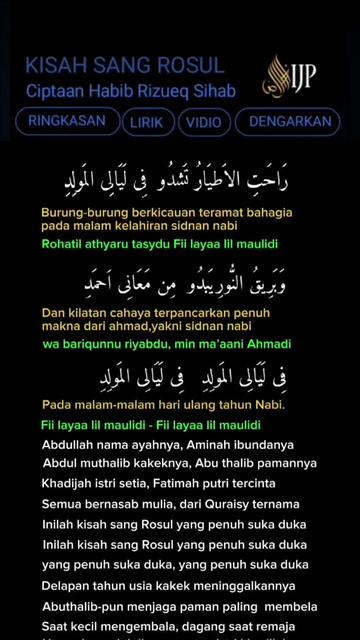 KISAH SANG ROSUL
Ciptaan Habib Rizueq Sihab
IJP
RINGKASAN
LIRIK
VIDIO
DENGARKAN
رَاحَتِ الاَطيَارُ تَشدُو فِى لَيَالِى المَولِدِ
Burung-burung berkicauan teramat bahagia
pada malam kelahiran sidnan nabi
Rohatil athyaru tasydu Fii layaa lil maulidi
وَبَرِيقُ النُّورِيَبدُو مِن مَعَانِى اَحمَدِ
Dan kilatan cahaya terpancarkan penuh
makna dari ahmad,yakni sidnan nabi
wa bariqunnu riyabdu, min ma'aani Ahmadi
فِى لَيَالِى المَولِدِ فِى لَيَالِى المَولِدِ
Pada malam-malam hari ulang tahun Nabi.
Fii layaa lil maulidi - Fii layaa lil maulidi
Abdullah nama ayahnya, Aminah ibundanya
Abdul muthalib kakeknya, Abu thalib pamannya
Khadijah istri setia, Fatimah putri tercinta
Semua bernasab mulia, dari Quraisy ternama
Inilah kisah sang Rosul yang penuh suka duka
Inilah kisah sang Rosul yang penuh suka duka
yang penuh suka duka, yang penuh suka duka
Delapan tahun usia kakek meninggalkannya
Abuthalib-pun menjaga paman paling membela
Saat kecil mengembala, dagang saat remaja